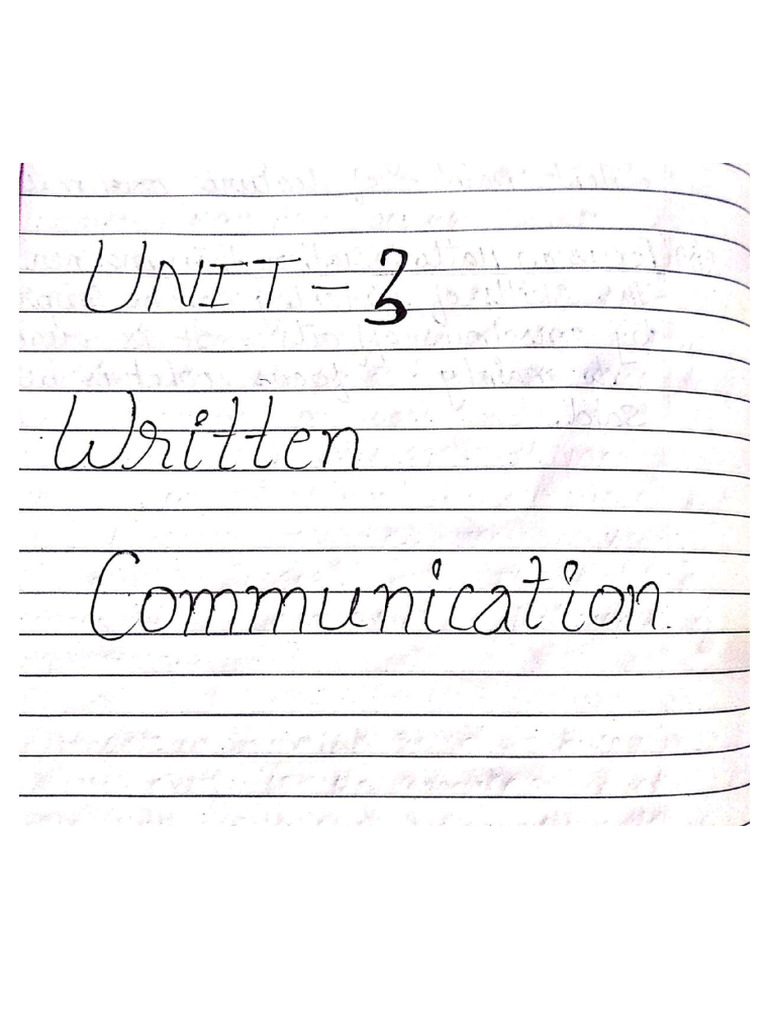 UNIT - 3
Written
Communication.